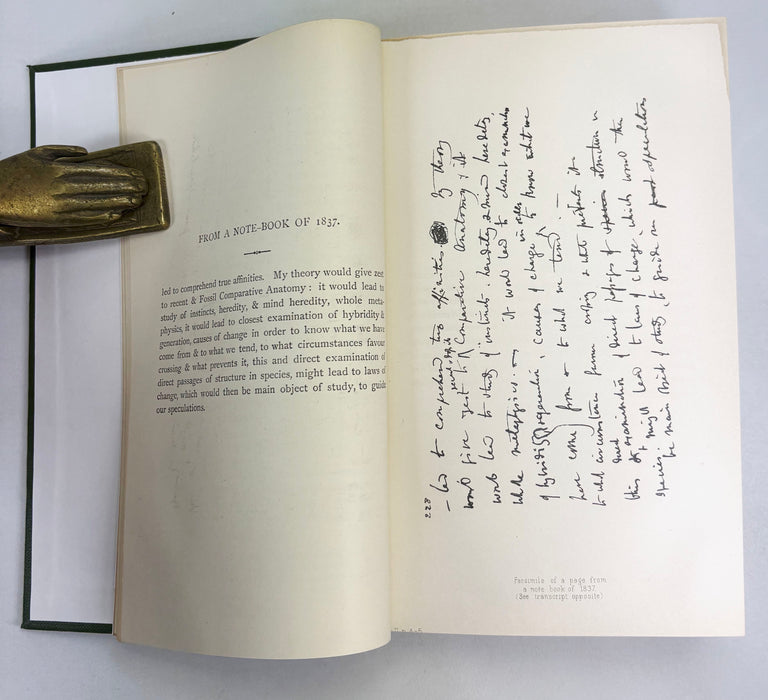 FROM A NOTE-BOOK OF 1837.
led to comprehend true affinities. My theory would give zest
to recent & Fossil Comparative Anatomy: it would lead to
study of instincts, heredity, & mind heredity, whole meta-
physics, it would lead to closest examination of hybridity &
generation, causes of change in order to know what we have
come from & to what we tend, to what circumstances favour
crossing & what prevents it, this and direct examination of
direct passages of structure in species, might lead to laws of
change, which would then be main object of study, to guide
our speculations.
228
– led to comprehend true affinities. My theory
would give zest to recent & fossil Comparative Anatomy, & it
would lead to study of instincts, heredity & mind heredity,
whole metaphysics. – it would lead to closest examination
of hybridity & generation, causes of change in order to know what we
have come from & to what we tend. –
to what circumstances favour crossing & what prevents it
this & direct examination of direct passages of structure in
species, might lead to laws of change, which would then
be main object of study, to guide our speculations
Facsimile of a page from
a note book of 1837.
(See transcript opposite)